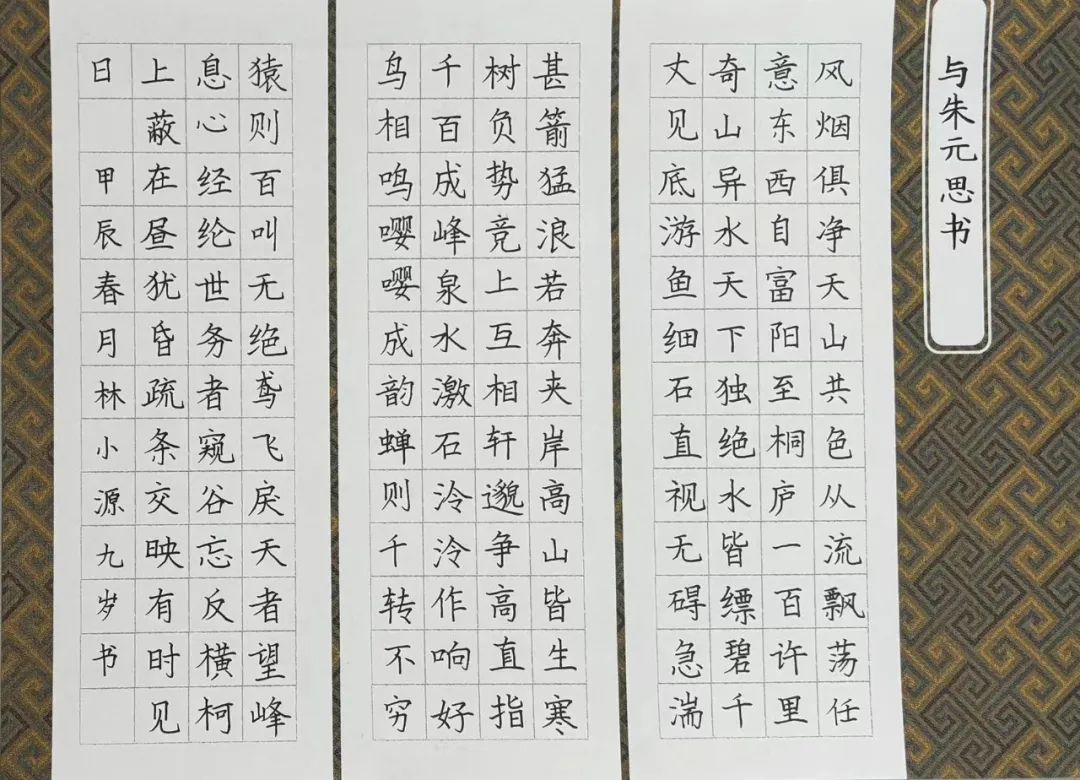 与朱元思书
风烟俱净天山共色从流飘荡任
意东西自富阳至桐庐一百许里
奇山异水天下独绝水皆缥碧千
丈见底游鱼细石直视无碍急湍
甚箭猛浪若奔夹岸高山皆生寒
树负势竞上互相轩邈争高直指
千百成峰泉水激石泠泠作响好
鸟相鸣嘤嘤成韵蝉则千转不穷
猿则百叫无绝鸢飞戾天者望峰
息心经纶世务者窥谷忘反横柯
上蔽在昼犹昏疏条交映有时见
日
甲辰春月林小源九岁书